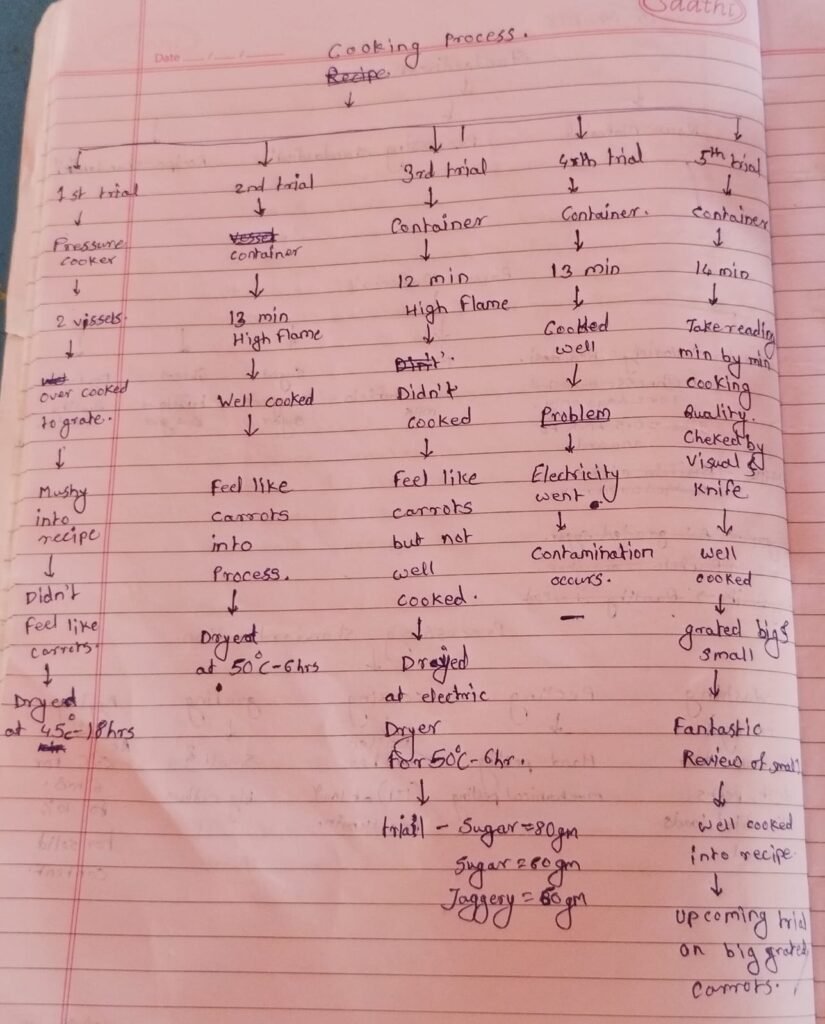 Saathi
Date
Cooking Process.
Recipe
1st trial
Pressure
cooker
2 vissels.
over cooked
to grate.
Mushy
into
recipe
Didn't
feel like
carrots.
Dryed
at 45°C-18hrs
2nd trial
Vessel
container
13 min
High flame
Well cooked
Feel like
carrots
into
Process.
Dryed
at 50°C-6hrs
3rd trial
Container
12 min
High flame
Didn't
cooked
feel like
carrots
but not
well
cooked.
Drayed
at electric
Dryer
for 50°C-6hr.
trial - Sugar = 80gm
Sugar = 60gm
Jaggery = 60gm
4rth trial
Container.
13 min
Cooked
well
Problem
Electricity
went.
Contamination
occurs.
5th trial
container
14 min
Take reading
min by min
cooking
Quality.
Cheked by
Visual &
Knife
well
cooked
grated big &
small
Fantastic
Review of small
well cooked
into recipe
upcoming trial
on big grated
carrots.